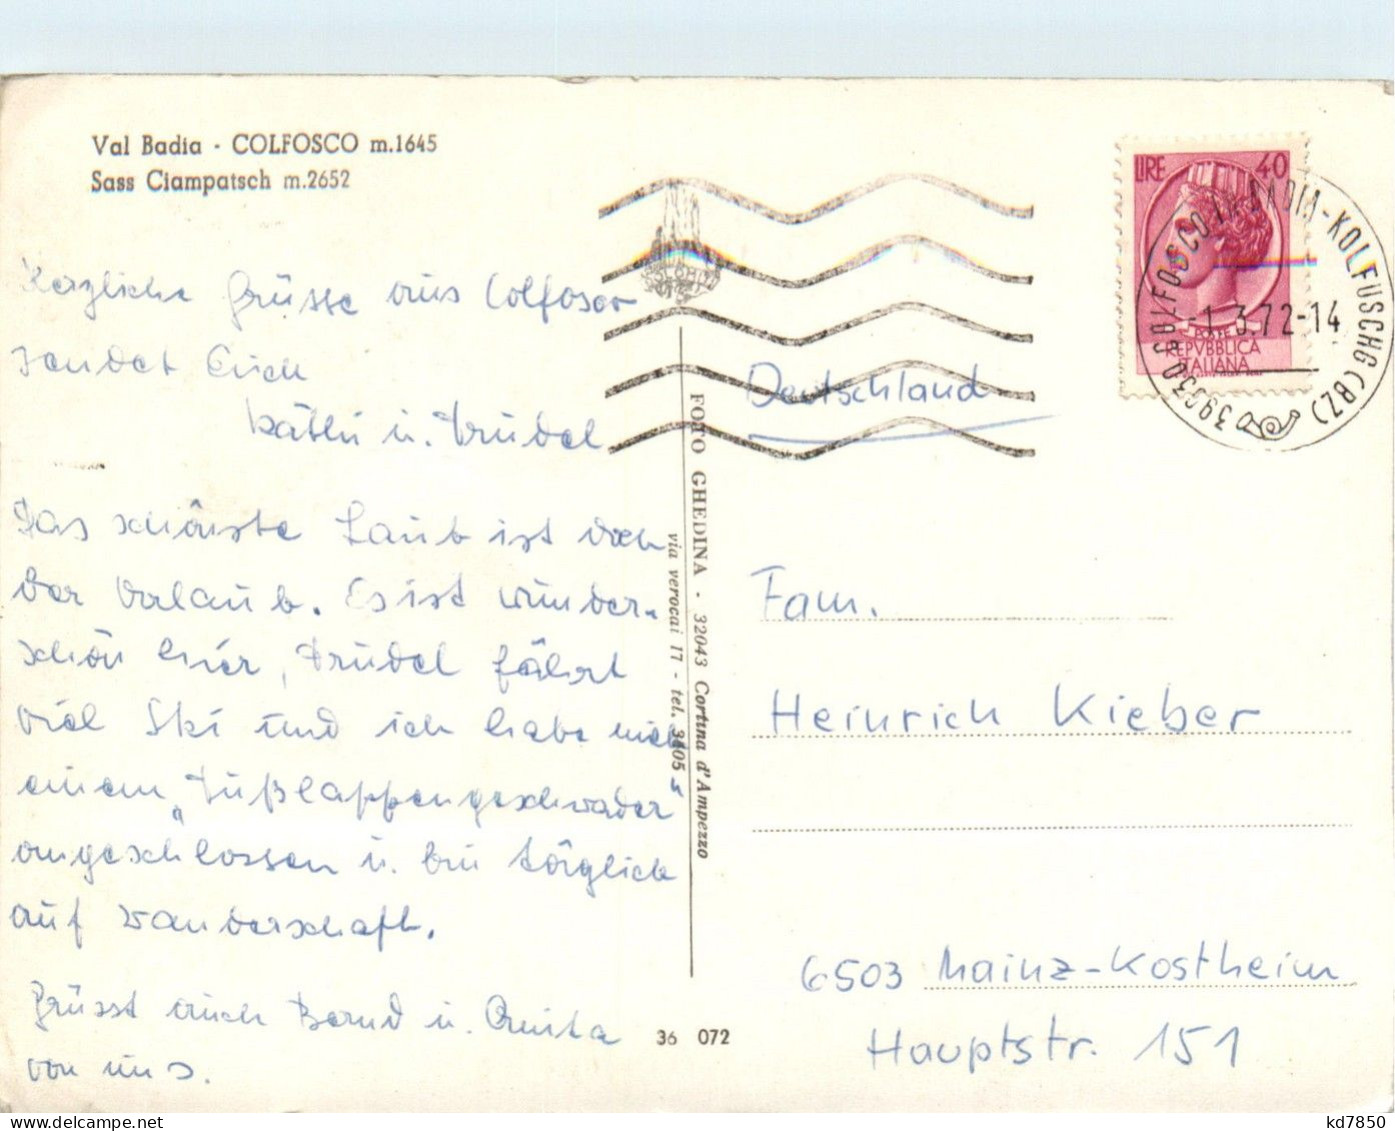 Val Badia - COLFOSCO m.1645
Sass Ciampatsch m.2652
Herzliche Grüsse aus Colfosco
sendet Euch
Käthi u. Trudel
Das schönste Laub ist doch
der Urlaub. Es ist wunder-
schön hier, Trudel fährt
viel Ski und ich habe mich
einem „Fußlappengeschwader“
angeschlossen u. bin täglich
auf Wanderschaft.
Grüsst auch Bernd u. Anita
von uns.
FOTO GHEDINA - 32043 Cortina d'Ampezzo
via verocai 17 - tel. 3405
36 072
LIRE 40
POSTE
REPVBBLICA
ITALIANA
39030 COLFOSCO IN BADIA-KOLFUSCHG (BZ)
-1.3.72-14
Deutschland
Fam.
Heinrich Kieber
6503 Mainz-Kostheim
Hauptstr. 151
kd7850